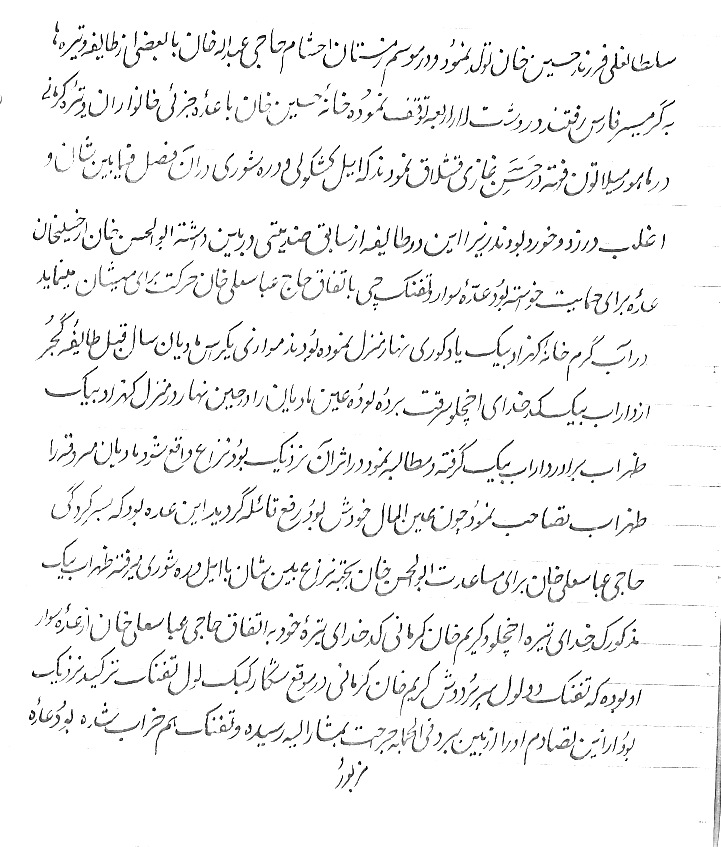 سلطانعلی فرزند حسین خان تولد نمود و در موسم زمستان احشام حاجی عبداله خان با بعضی از طایفه و تیره ها
به گرمسیر فارس رفتند در دشت لاار اربعه توقف نموده خانهٔ حسین خان با عدهٔ جزئی خانواران و تیره کرمانی
در ماهور میلاتون رفته در حَسَن غازی قشلاق نمودند که ایل کشکولی و دره شوری در آن فصل فیمابین شان و
اغلب در زد و خورد بودند زیرا این دو طایفه از سابق ضدیتی در بین داشته ابوالحسن خان از خلیلخان
عدهٔ برای حمایت خواسته بود عدهٔ سوار و تفنگ چی باتفاق حاج عباسعلی خان حرکت برای میشان مینماید
در آب گرم خانهٔ کهزاد بیک یادکوری نهار منزل نموده بودند موازی یکرأس مادیان سال قبل طایفهٔ گجر
از داراب بیک کدخدای اخچلو سرقت برده بوده عین مادیان را در حین نهار در منزل کهزاد بیک
طهراب برادر داراب بیک گرفته و مطالبه نمود در اثر آن نزدیک بود نزاع واقع شود مادیان مسروقه را
طهراب تصاحب نمود چون عین المال خودش بود رفع قائله گردید این عده بود که بسرکردگی
حاجی عباسعلی خان برای مساعدت ابوالحسن خان بجهته نزاع بین شان با ایل دره شوری میرفته طهراب بیک
مذکور کدخدای تیره اخچلو و کریم خان کرمانی کدخدای تیرهٔ خود به اتفاق حاجی عباسعلی خان از عدهٔ سوار
او بوده که تفنگ دو لول سرپُر دوش کریم خان کرمانی در موقع شکار کبک لول تفنگ ترکید نزدیک
بود از این تصادم او را از بین ببرد فی الجمله جرحت بمشارالیه رسیده و تفنگ هم خراب شده بود عدهٔ
مزبور